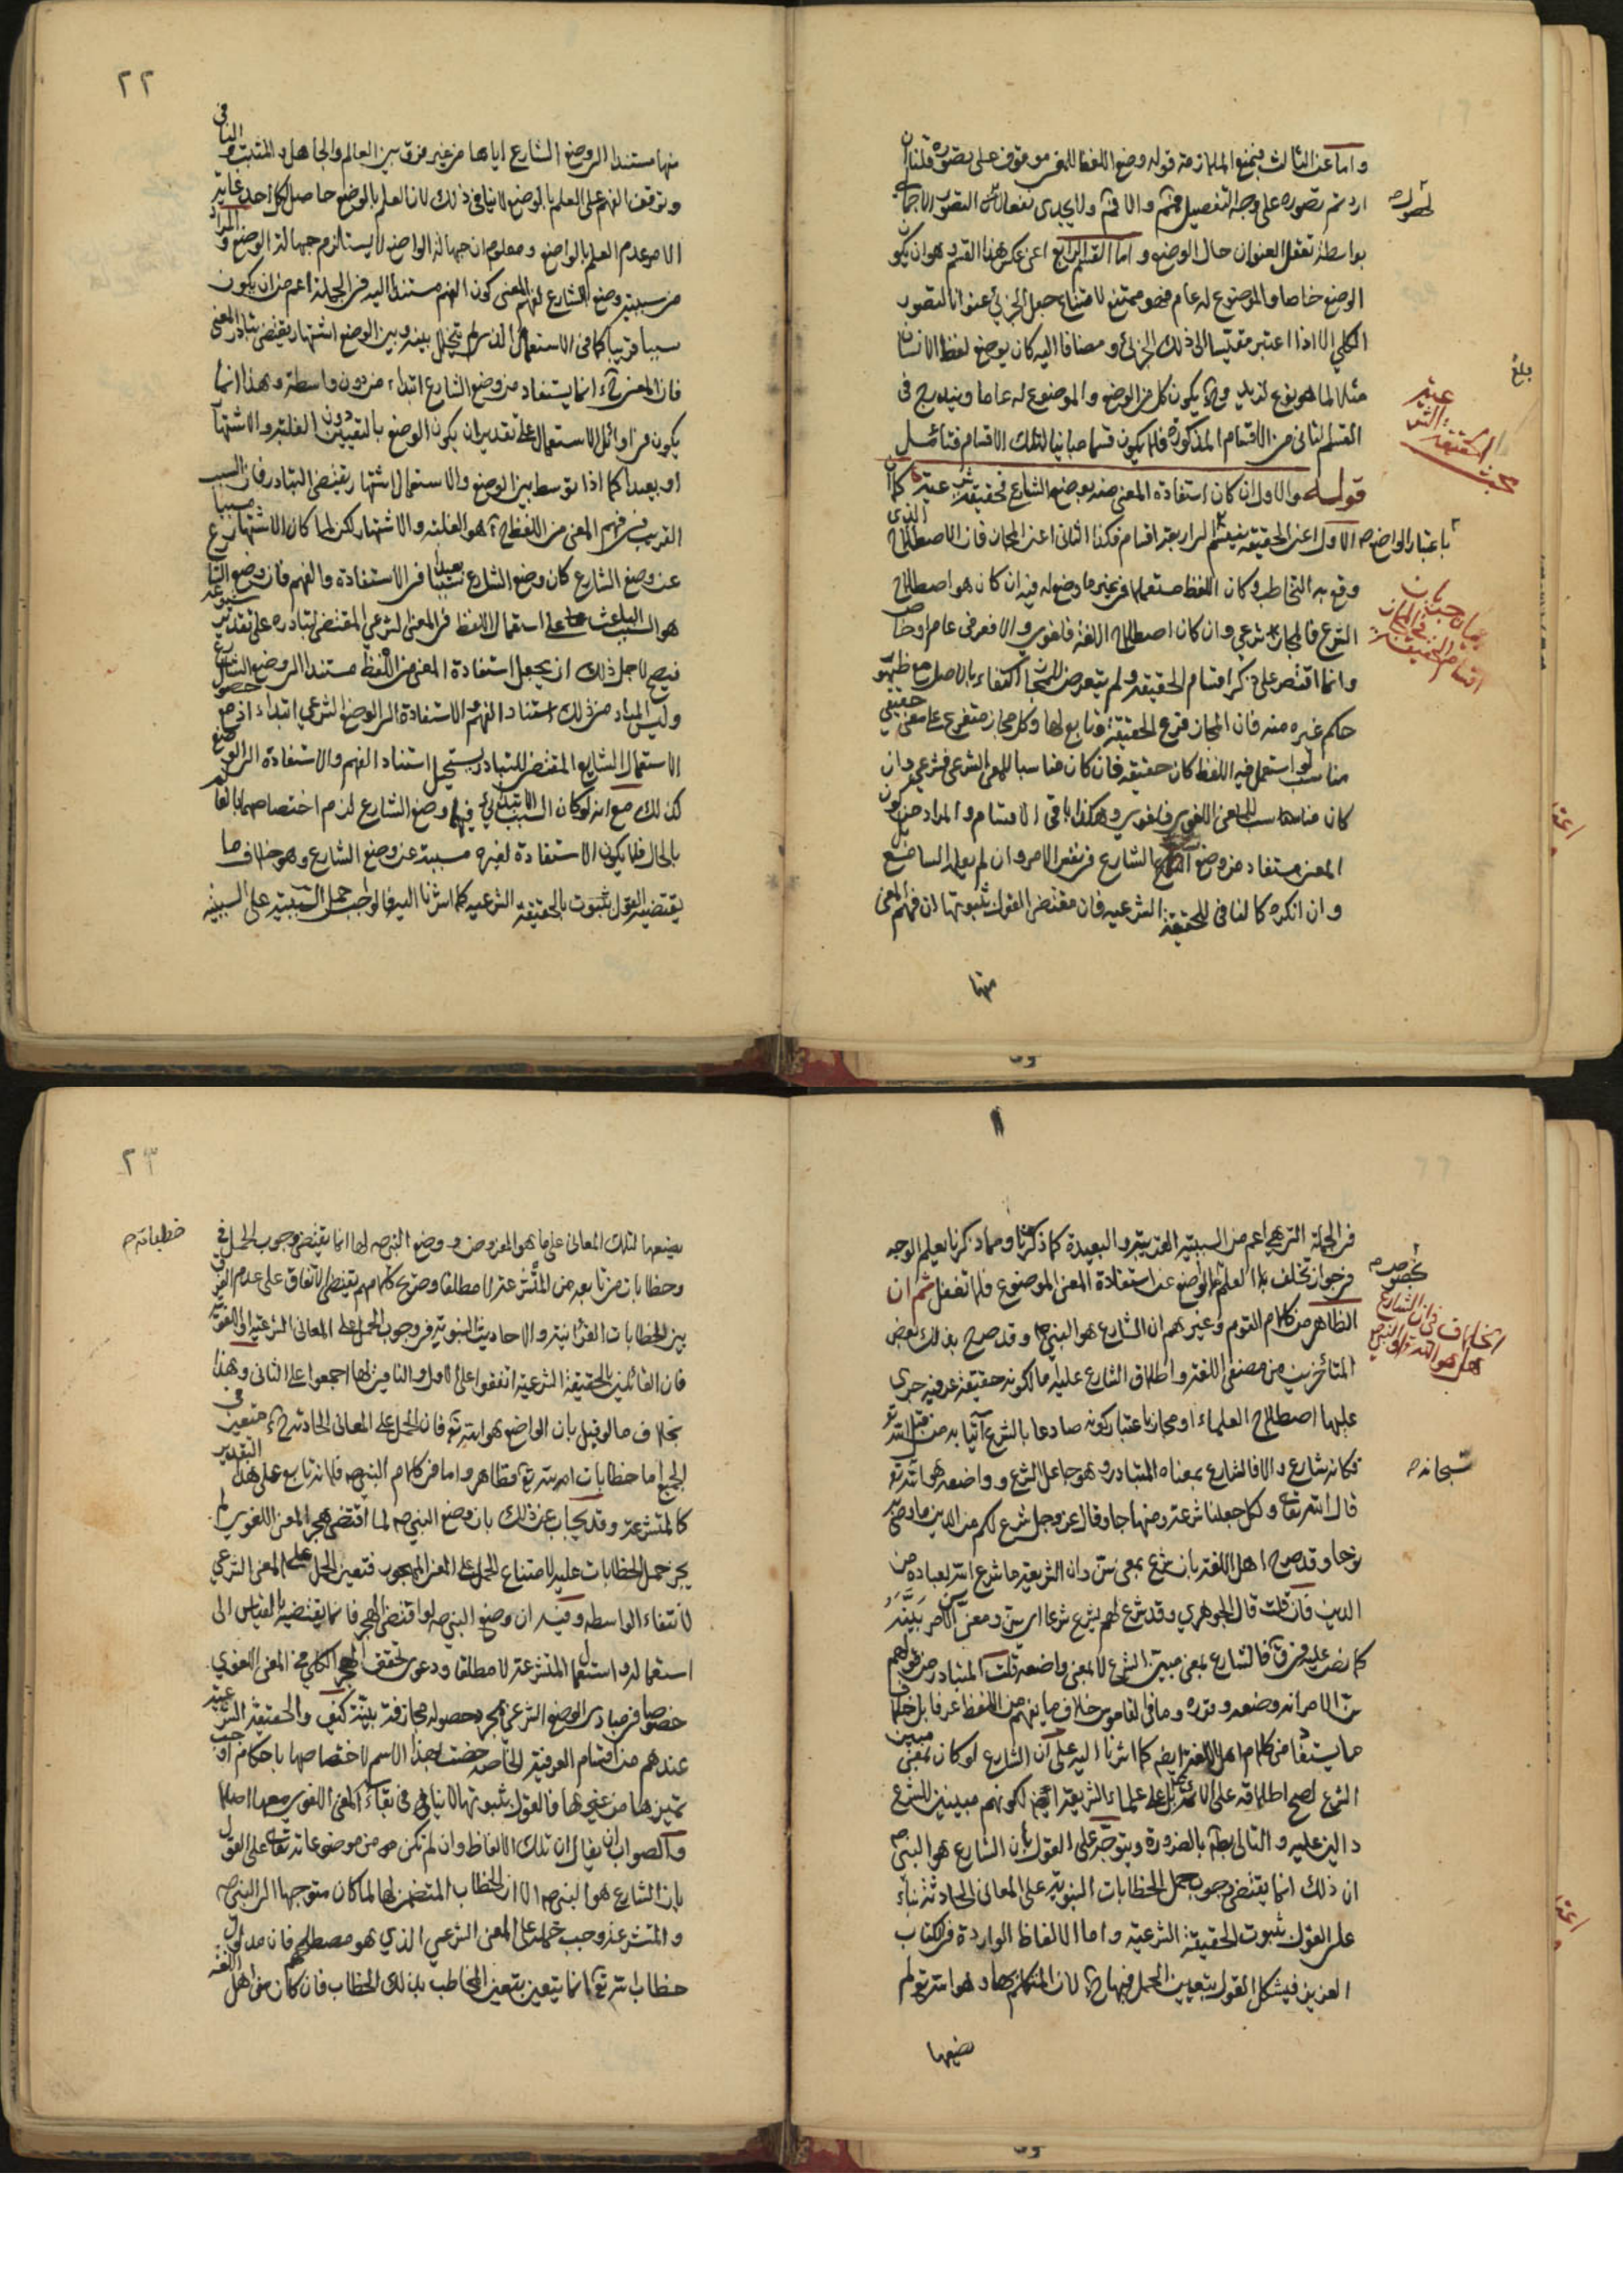 واما عن الثالث فبمنع الملازمة قوله وضع اللفظ للغير موقوف على تصوره قلنا ان
اردتم تصوره على وجه التفصيل فمم والا فمم ولا يجدى نفعا لان التصور الاجمالي
لحصوله
بواسطة تعقل العنوان حال الوضع واما القسم الرابع اعنى عكس هذا القسم وهو ان يكون
الوضع خاصا والموضوع له عام فهو ممتنع لامتناع جعل الجزئي عنوانا لتصور
الكلي الا اذا اعتبر مقيسا الى ذلك الجزئى ومضافا اليه كان يوضع لفظ الانسان
بلغ
مثلا لما هو نوع لزيد وح يكون كل من الوضع والموضوع له عاما ويندرج فى
القسم الثانى من الاقسام المذكورة فلا يكون قسما مباينا لتلك الاقسام فتأمل
بحث الحقيقة الشرعية
قوله والاول ان كان استفادة المعنى منه بوضع الشارع فحقيقة شرعية كما ان
الاول اعنى الحقيقة ينقسم الى اربعة اقسام فكذا الثانى اعنى المجاز فان الاصطلاح الذى
باعتبار الواضع
وقع به التخاطب وكان اللفظ مستعملا فى غير ما وضع له فيه ان كان هو اصطلاح
الشرع فالمجاز شرعي وان كان اصطلاح اللغة فلغوي والا فعرفى عام او خاص
بيان جريان اقسام الحقيقة فى المجاز
وانما اقتصر على ذكر اقسام الحقيقة ولم يتعرض للمجاز اكتفاء بالاصل مع ظهور
حكم غيره منه فان المجاز فرع الحقيقة وتابع لها وكل مجاز متفرع على معنى حقيقي
مناسب لو استعمل فيه اللفظ كان حقيقة فان كان مناسبا للمعنى الشرعي فشرعي وان
كان مناسبا للمعنى اللغوي فلغوي وهكذا باقى الاقسام والمراد من كون
المعنى مستفاد من وضع الشارع فى نفس الامر وان لم يعلم السامع بل
وان انكره كالنافى للحقيقة الشرعيه فان مقتضى القول بثبوتها ان فهم المعنى
منها
٢٢
منها مستند الى وضع الشارع اياها من غير فرق بين العالم والجاهل والمثبت والنافى
وتوقف الفهم على العلم بالوضع لا ينافى ذلك لان العلم بالوضع حاصل لكل احد غاية
الامر عدم العلم بالواضع ومعلوم ان جهالة الواضع لا يستلزم جهالة الوضع والمراد
من سببية وضع الشارع لفهم المعنى كون الفهم مستندا اليه فى الجملة اعم من ان يكون
سببا قريبا كما فى الاستعمال الذى لم يتخلل بينه وبين الوضع اشتهار يقتضى تبادر المعنى
فان المعنى ح انما يستفاد من وضع الشارع ابتداء من دون واسطة وهذا انما
يكون فى اوائل الاستعمال على تقدير ان يكون الوضع بالتعيين دون الغلبة والاشتهار
او بعيدا كما اذا توسط بين الوضع والاستعمال اشتهار يقتضى التبادر فان السبب
القريب فى فهم المعنى من اللفظ ح هو الغلبة والاشتهار لكن لما كان الاشتهار مسببا
عن وضع الشارع كان وضع الشارع سببا بعيدا فى الاستفادة والفهم فان وضع الشارع
هو السبب الباعث على استعمال اللفظ فى المعنى الشرعي المقتضى لتبادره على تقدير
فيصح لاجل ذلك ان يجعل استفادة المعنى من اللفظ مستندا الى وضع الشارع
وليس المراد من ذلك استناد الفهم والاستفادة الى الوضع الشرعي ابتداء اذ مع حصول
الاستعمال الشايع المقتضى للتبادر يستحيل استناد الفهم والاستفادة الى الوضع
كذلك مع انه لو كان السبب الابتدائى فيهما وضع الشارع لزم اختصاصهما بالعالم
بالحال فلا يكون الاستفادة لغيره مسببة عن وضع الشارع وهو خلاف ما
يقتضيه القول بثبوت الحقيقة الشرعيه كما اشرنا اليه فالواجب حمل السببية على السببية
فى الجملة التى هى اعم من السببية القريبة والبعيدة كما ذكرنا ومما ذكرنا يعلم الوجه
فى جواز تخلف العلم بالوضع عن استفادة المعنى الموضوع فلا تغفل ثم ان
بخصوصه
الظاهر من كلام القوم وغيرهم ان الشارع هو النبى ص وقد صرح بذلك بعض
الخلاف فى ان الشارع هل هو الله او النبى
المتأخرين من مصنفى اللغة واطلاق الشارع عليه اما لكونه حقيقة عرفية جرى
عليها اصطلاح العلماء او مجازا باعتبار كونه صادعا بالشرع آتيا به من قبل الله تع
فكانه شارع والا فالشارع بمعناه المتبادر وهو جاعل الشرع وواضعه هو الله تع
سبحانه
قال الله تعالى ولكل جعلنا شرعة ومنهاجا وقال عز وجل شرع لكم من الدين ما وصى به
نوحا وقد صرح اهل اللغة بان شرع بمعنى سن وان الشريعة ما شرع الله لعباده من
الدين فان قلت قال الجوهري وقد شرع لهم يشرع شرعا اى سن ومعنى سن الامر بينه
كما نص عليه فى ق فالشارع بمعنى مبين الشرع لا بمعنى واضعه قلت المتبادر من قولهم
سن الامر انه وضعه وقرره وما فى القاموس خلاف ما يفهم من اللفظ عرفا بل خلاف
ما يستفاد من كلام اهل اللغة ايضا كما اشرنا اليه على ان الشارع لو كان بمعنى مبين
الشرع لصح اطلاقه على الائمة ع بل على علماء الشريعة ايضا لكونهم مبينين للشرع
دالين عليه والتالى بط بالضرورة ويتوجه على القول بان الشارع هو النبى ص
ان ذلك انما يقتضى وجوب حمل الخطابات النبوية على المعانى الحادثة بناء
على القول بثبوت الحقيقة الشرعية واما الالفاظ الواردة فى الكتاب
العزيز فيشكل القول بتعيين الحمل فيها ح لان المتكلم بها وهو الله تع لم
يضعها
٢٣
يضعها لتلك المعانى على ما هو المفروض ووضع النبى ص لها انما يقتضى وجوب الحمل فى
خطاباته ص
وخطابات من تابعه من المتشرعة لا مطلقا وصريح كلامهم يقتضى الاتفاق على عدم الفرق
بين الخطابات القرآنية والاحاديث النبوية فى وجوب الحمل على المعانى الشرعية او اللغوية
فان القائلين بالحقيقة الشرعية اتفقوا على الاول والنافين لها اجمعوا على الثانى وهذا
بخلاف ما لو قيل بان الواضع هو الله تع فان الحمل على المعانى الحادثة ح متعين فى
الجميع اما خطابات الله تع فظاهر واما فى كلام النبى ص فلانه تابع على هذا التقدير
كالمتشرعة وقد يجاب عن ذلك بان وضع النبى ص لما اقتضى هجر المعنى اللغوي لم
يجز حمل الخطابات عليه لامتناع الحمل على المعنى المهجور فتعين الحمل على المعنى الشرعي
لانتفاء الواسطه وفيه ان وضع النبى ص لو اقتضى الهجر فانما يقتضيه بالقياس الى
استعماله واستعمال المتشرعة لا مطلقا ودعوى تحقق الهجر الكلي فى المعنى اللغوي
خصوصا فى مبادى الوضع الشرعى بمجرد حصوله مجازفة بينة كيف والحقيقة الشرعية
عندهم من اقسام العرفية الخاصة خصت بهذا الاسم لاختصاصها باحكام اوجبت
تميزها من غيرها فالقول بثبوتها لا ينافى بقاء المعنى اللغوي معها اصلا
والصواب ان يقال ان تلك الالفاظ وان لم تكن من موضوعاته تعالى على القول
بان الشارع هو النبى ص الا ان الخطاب المتضمن لها لما كان متوجها الى النبى ص
والمتشرعة وجب حمله على المعنى الشرعي الذي هو مصطلحهم فان مدلول
خطاب الله تع انما يتعين بتعين المخاطب بذلك الخطاب فان كان من اهل اللغة